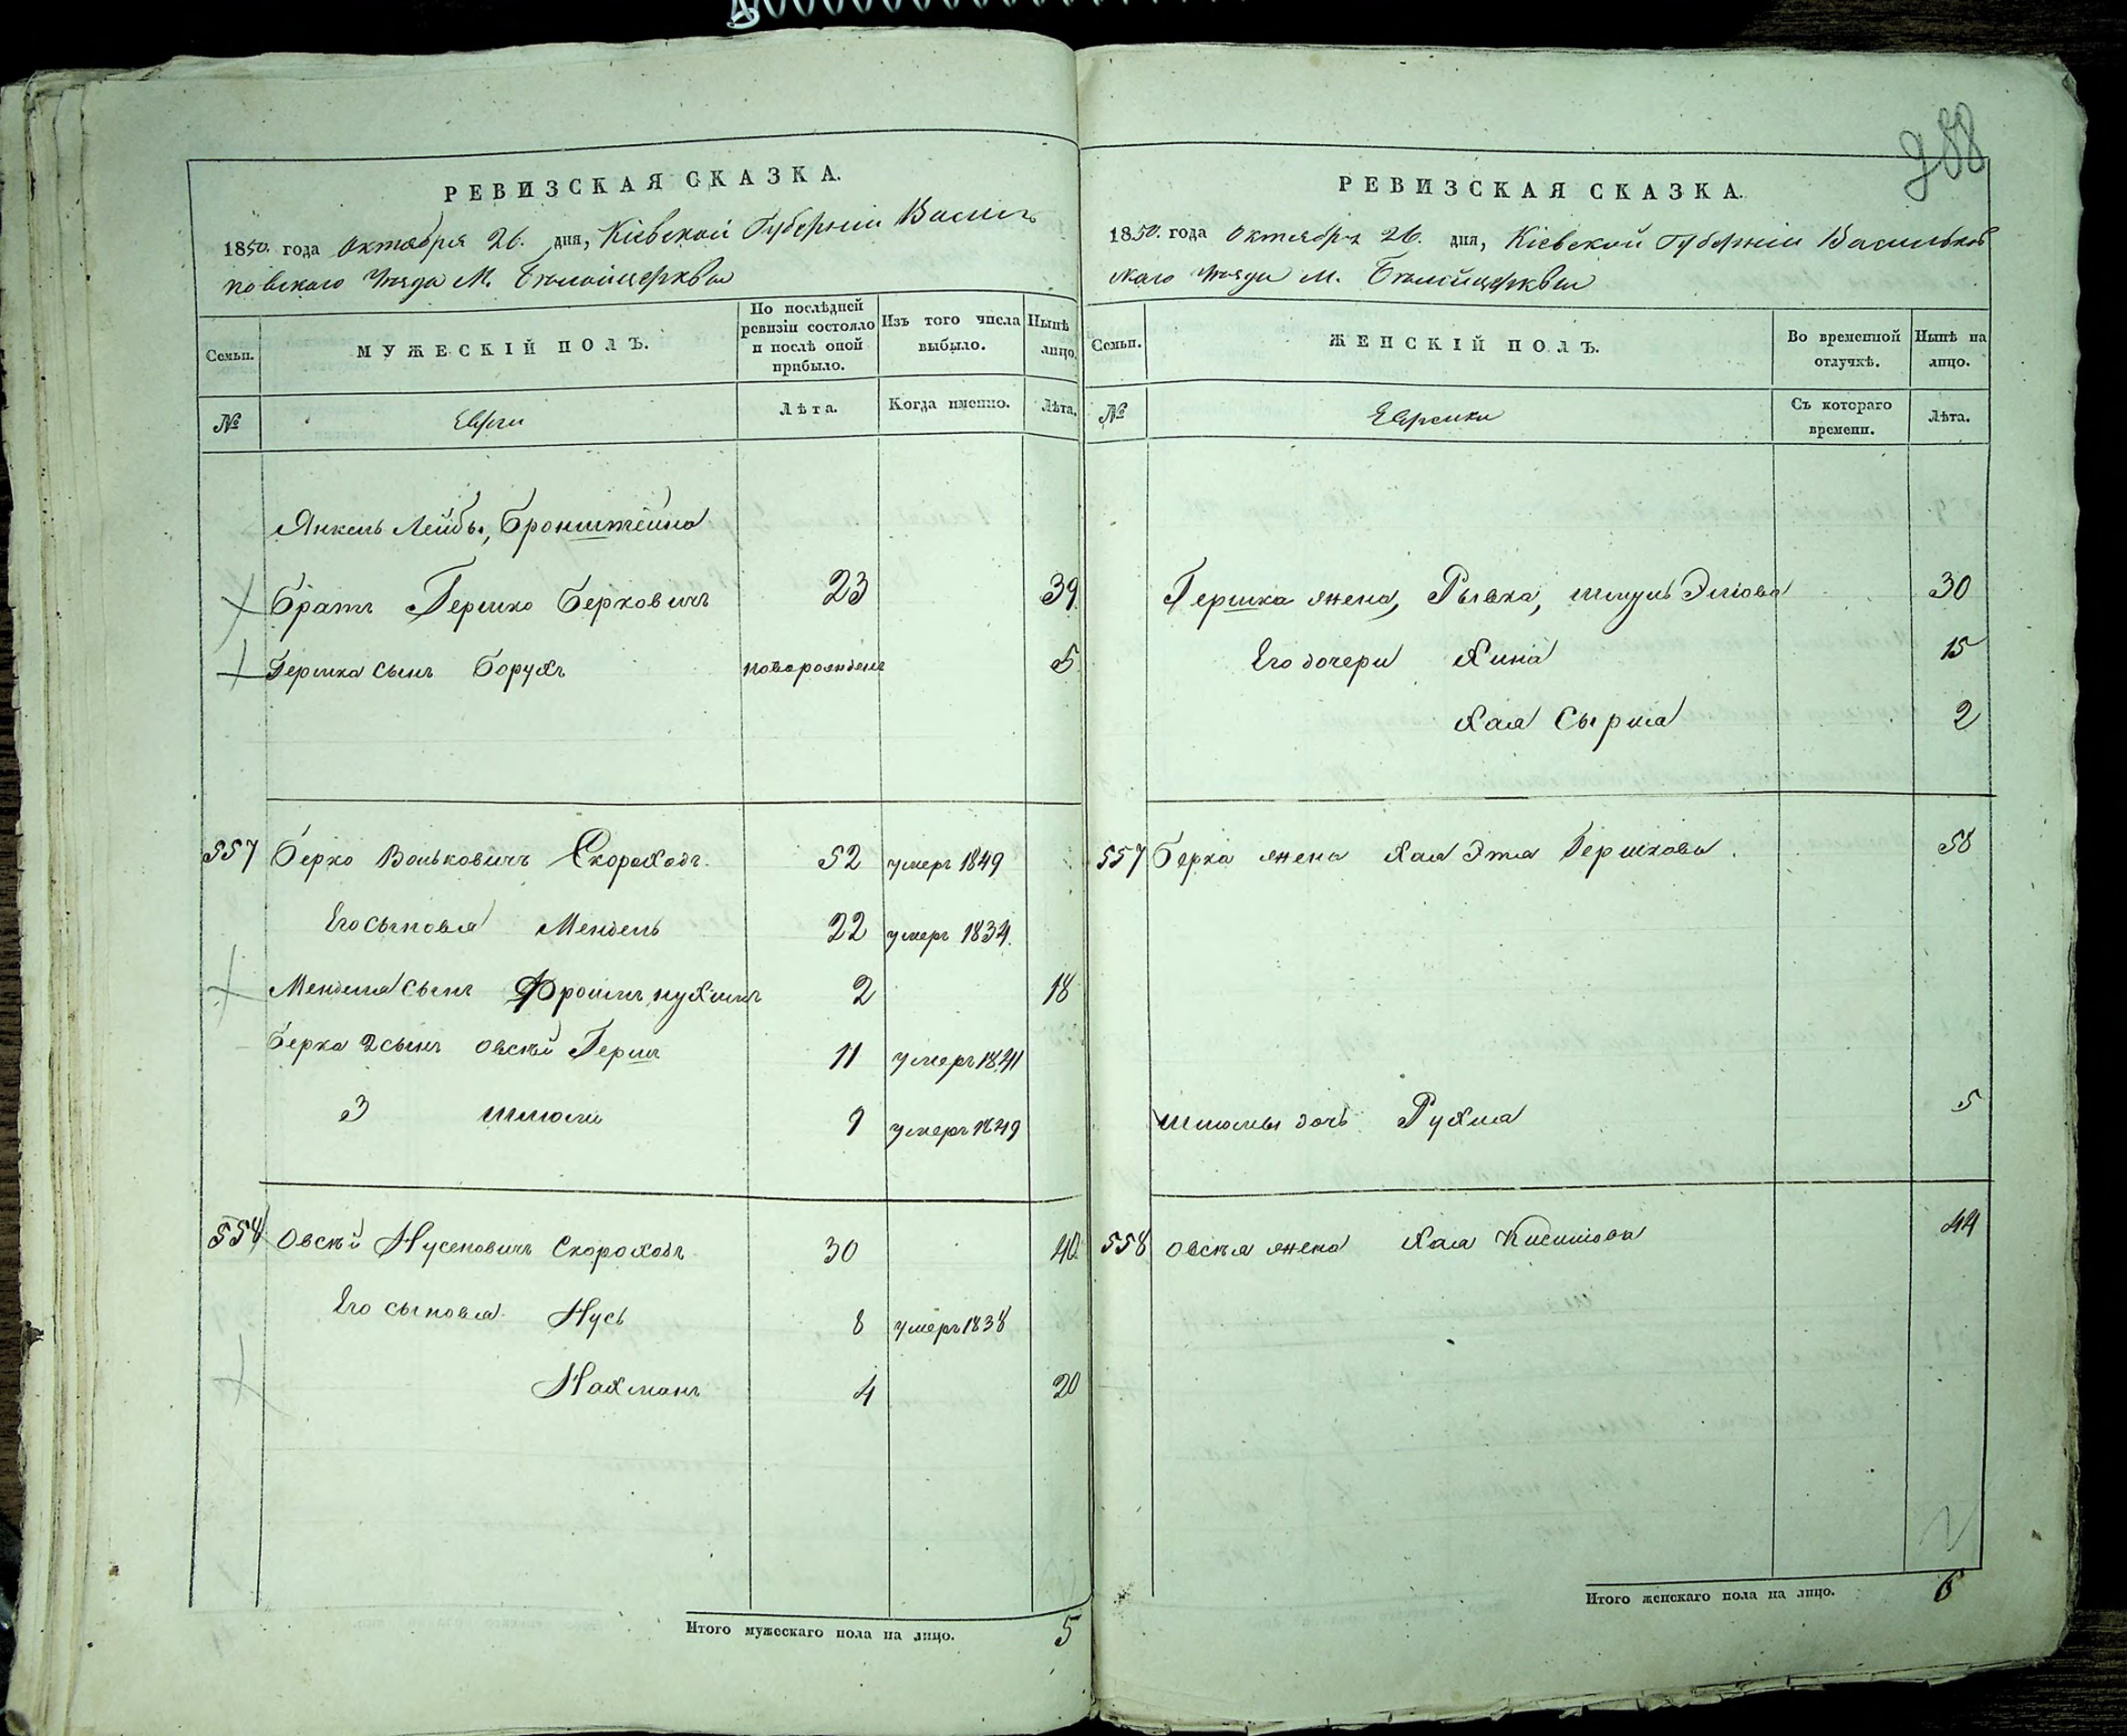 288
РЕВИЗСКАЯ СКАЗКА.
1850. года Октября 26. дня, Кіевской Губерніи Василь
ковскаго Уѣзда М. Бѣлойцеркви
Семьи.
МУЖЕСКІЙ ПОЛЪ.
По послѣдней ревизіи состояло и послѣ оной прибыло.
Изъ того числа выбыло.
Нынѣ на лицо.
№
Евреи
Лѣта.
Когда именно.
Лѣта.
Янкель Лейбы, Бронштейна
Братъ Гершко Берковичъ 23 39
Гершка сынъ Борухъ новорожденъ 5
557 Берко Вольковичъ Скороходъ. 52 умеръ 1849
Его сыновья Мендель 22 умеръ 1834.
Менделя сынъ Фроимъ нухимъ 2 18
Берка 2 сынъ Овсѣй Гершъ 11 умеръ 1841
3 Шлиома 9 умеръ 1849
558 Овсѣй Нусеновичъ Скороходъ 30 46
Его сыновья Нусь 8 умеръ 1838
Нахманъ 4 20
Итого мужескаго пола на лицо. 5
РЕВИЗСКАЯ СКАЗКА.
1850. года Октября 26. дня, Кіевской Губерніи Васильков
скаго Уѣзда М. Бѣлойцеркви
Семьи.
ЖЕНСКІЙ ПОЛЪ.
Во временной отлучкѣ.
Нынѣ на лицо.
№
Еврейки
Съ котораго времени.
Лѣта.
Гершка жена, Рывка, Шмуль Эліова 30
Его дочери Хина 15
Хая Сырла 2
557 Берка жена Хая Этя Гершкова. 58
Шлиомы дочь Рухля 5
558 Овсѣя жена Хая 44
Итого женскаго пола на лицо. 6